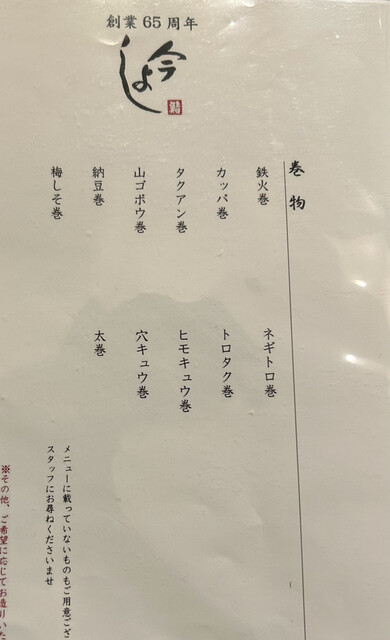 創業65周年
今しよ
鮨
巻物
鉄火巻
カッパ巻
タクアン巻
山ゴボウ巻
納豆巻
梅しそ巻
ネギトロ巻
トロタク巻
ヒモキュウ巻
穴キュウ巻
太巻
メニューに載っていないものもご用意ござ
スタッフにお尋ねくださいませ
※その他、ご希望に応じてお造りいた